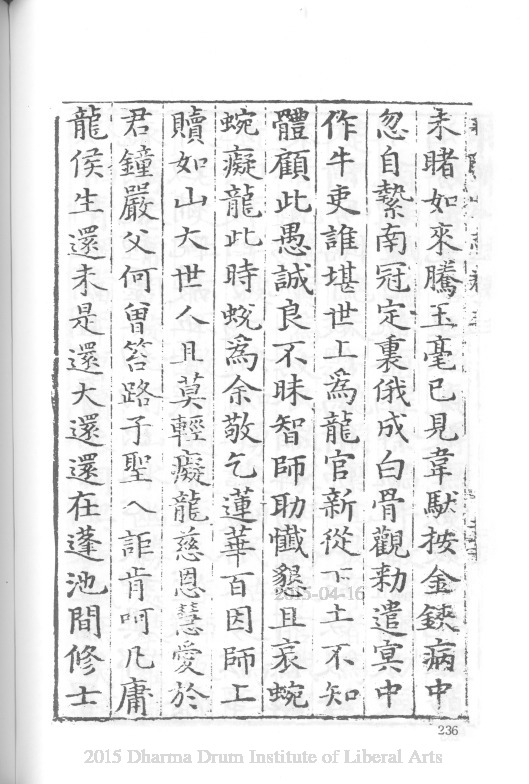 未睹如來騰玉毫已見韋馱按金鋏病中
忽自縶南冠定裏俄成白骨觀勑遣冥中
作牛吏誰堪世上為龍官新從下土不知
體顧此愚誠良不昧智師助懺懇且哀蜿
蜿癡龍此時蛻為余敬乞蓮華百因師上
贖如山大世人且莫輕癡龍慈恩慧愛於
君鐘嚴父何曾笞路子聖人詎肯呵凡庸
龍侯生還未是還大還還在蓬池間修士
236
2015-04-16
2015 Dharma Drum Institute of Liberal Arts